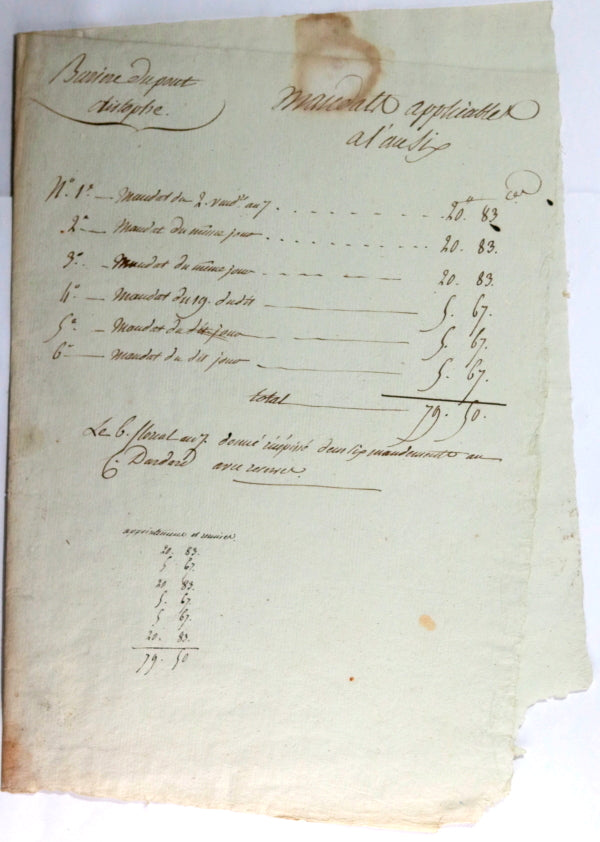 Bureau du pont
Mandats applicables
a l'an six
Nº 1º — Mandat du 2. vend.re an 7. 20. 83
2º — Mandat du même jour 20. 83.
3º — Mandat du même jour 20. 83.
4º — Mandat du 19. dudit 5. 67.
5º — Mandat du dit jour 5. 67.
6º — Mandat du dit jour 5. 67.
total 79. 50.
Le 6. floreal an 7. donné récépissé des six mandements au
C. Dardare avec reserve.
appointemens et remises
20. 83.
5. 67.
20. 83.
5. 67.
5. 67.
20. 83.
79. 50